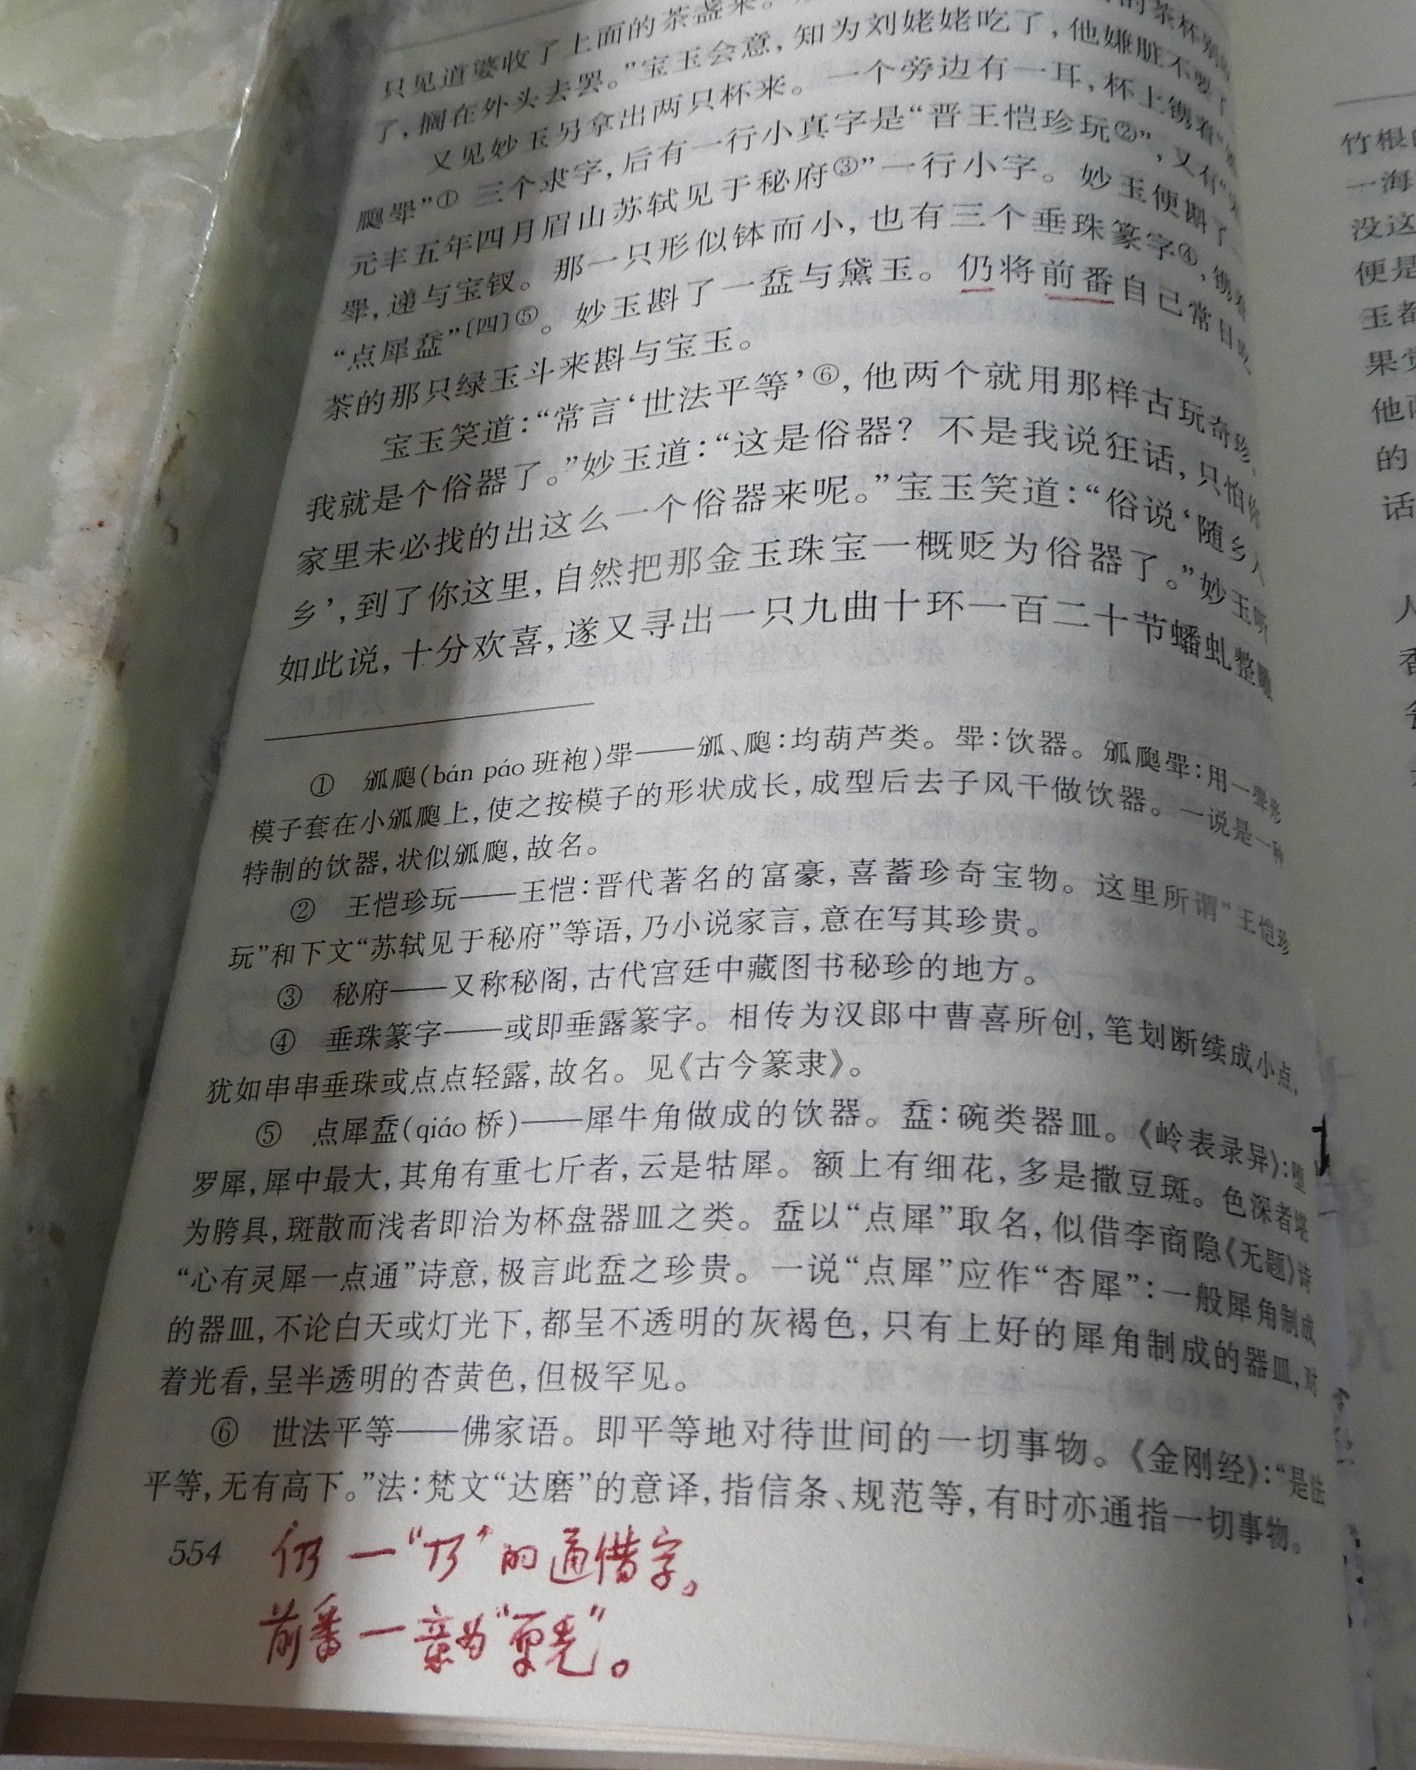 只见道婆收了上面的茶盏来。
了，搁在外头去罢。”宝玉会意，知为刘姥姥吃了，他嫌脏不要了
又见妙玉另拿出两只杯来。一个旁边有一耳，杯上镌着“
瓟斝”① 三个隶字，后有一行小真字是“晋王恺珍玩②”，又有“宋
元丰五年四月眉山苏轼见于秘府③”一行小字。妙玉便斟了一
斝，递与宝钗。那一只形似钵而小，也有三个垂珠篆字④，镌着
“点犀䀉”〔四〕⑤。妙玉斟了一䀉与黛玉。仍将前番自己常日吃
茶的那只绿玉斗来斟与宝玉。
宝玉笑道：“常言‘世法平等’⑥，他两个就用那样古玩奇珍，
我就是个俗器了。”妙玉道：“这是俗器？不是我说狂话，只怕你
家里未必找的出这么一个俗器来呢。”宝玉笑道：“俗说‘随乡入
乡’，到了你这里，自然把那金玉珠宝一概贬为俗器了。”妙玉听
如此说，十分欢喜，遂又寻出一只九曲十环一百二十节蟠虬整雕
① 𤬛瓟(bán páo 班袍)斝——𤬛、瓟：均葫芦类。斝：饮器。𤬛瓟斝：用一斝形
模子套在小𤬛瓟上，使之按模子的形状成长，成型后去子风干做饮器。一说是一种
特制的饮器，状似𤬛瓟，故名。
② 王恺珍玩——王恺：晋代著名的富豪，喜蓄珍奇宝物。这里所谓“王恺珍
玩”和下文“苏轼见于秘府”等语，乃小说家言，意在写其珍贵。
③ 秘府——又称秘阁，古代宫廷中藏图书秘珍的地方。
④ 垂珠篆字——或即垂露篆字。相传为汉郎中曹喜所创，笔划断续成小点，
犹如串串垂珠或点点轻露，故名。见《古今篆隶》。
⑤ 点犀䀉(qiáo 桥)——犀牛角做成的饮器。䀉：碗类器皿。《岭表录异》：堕
罗犀，犀中最大，其角有重七斤者，云是牯犀。额上有细花，多是撒豆斑。色深者堪
为胯具，斑散而浅者即治为杯盘器皿之类。䀉以“点犀”取名，似借李商隐《无题》诗
“心有灵犀一点通”诗意，极言此䀉之珍贵。一说“点犀”应作“杏犀”：一般犀角制成
的器皿，不论白天或灯光下，都呈不透明的灰褐色，只有上好的犀角制成的器皿，对
着光看，呈半透明的杏黄色，但极罕见。
⑥ 世法平等——佛家语。即平等地对待世间的一切事物。《金刚经》：“是法
平等，无有高下。”法：梵文“达磨”的意译，指信条、规范等，有时亦通指一切事物。
554
仍 — “乃”的通借字。
前番 — 意为
竹根
一海
没这
便是
玉都
果觉
他两
的
话
人
香